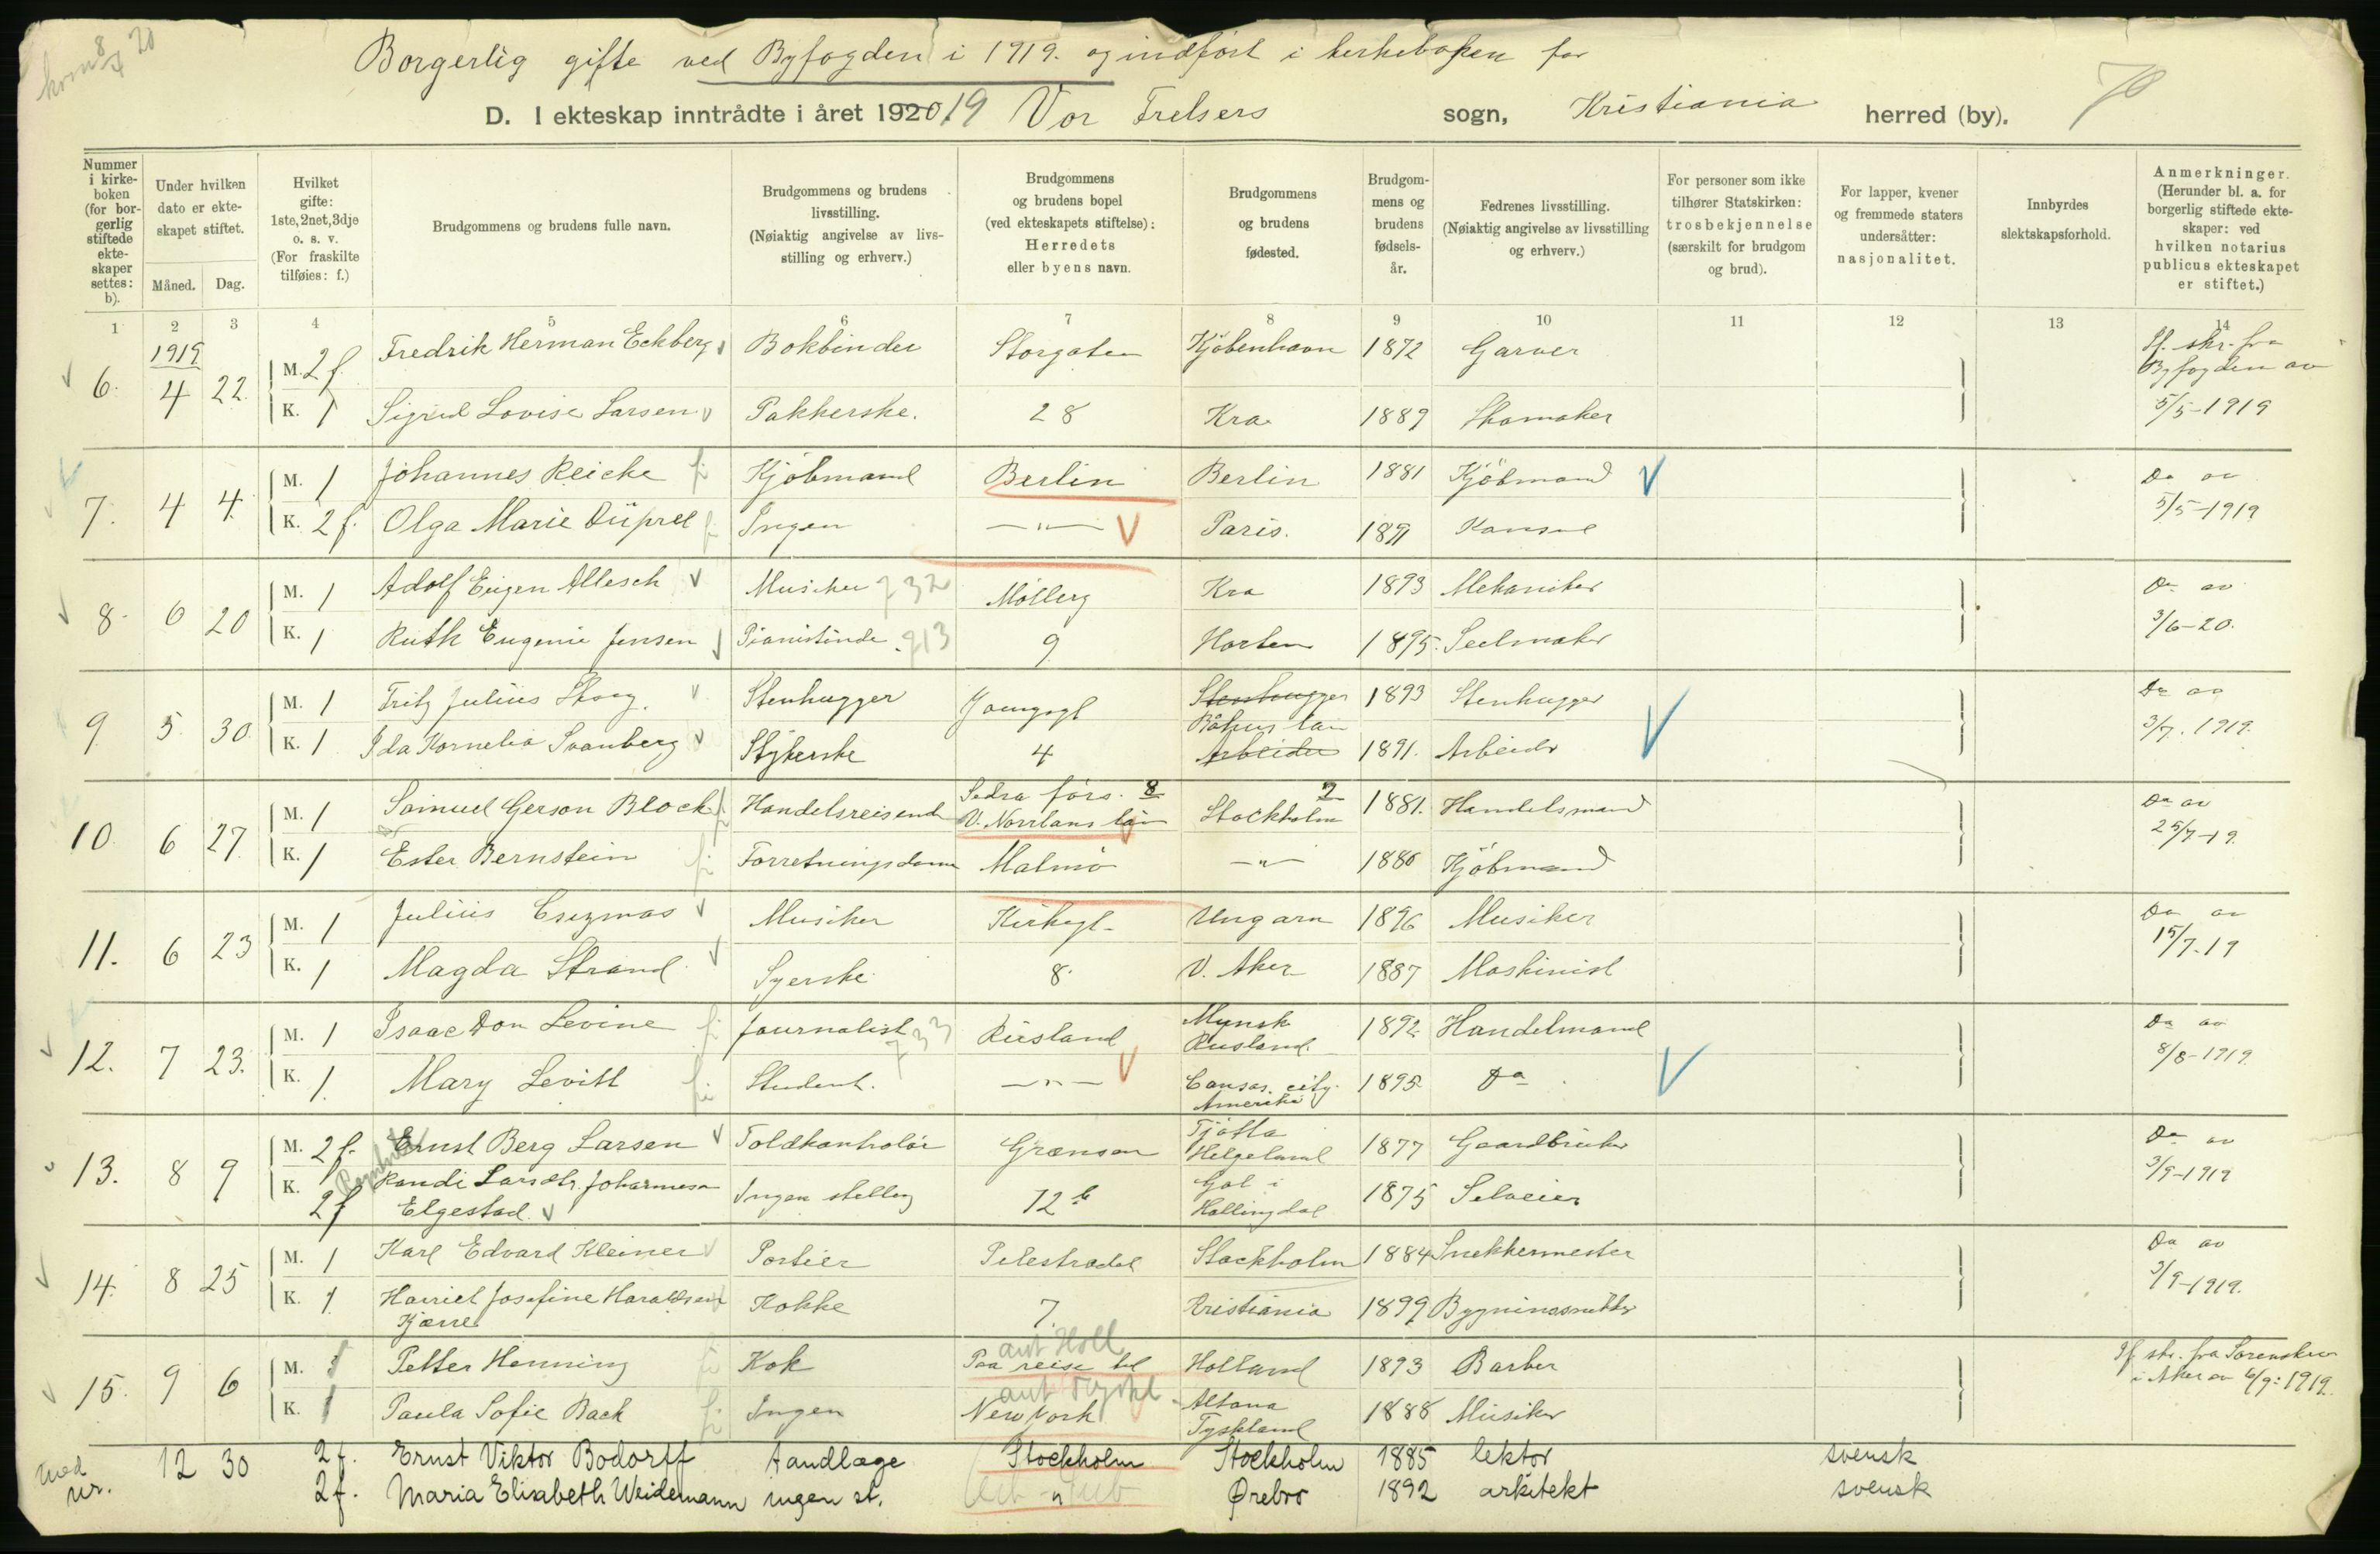 Borgerlig gifte ved Byfogden i 1919. og indført i kirkeboken for
D. I ekteskap inntrådte i året 1920. 19 Vor Frelsers sogn, Kristiania herred (by).
Nummer i kirkeboken (for borgerlig stiftede ekteskaper settes: b).
Under hvilken dato er ekteskapet stiftet.
Måned. Dag.
Hvilket gifte: 1ste, 2net, 3dje o. s. v. (For fraskilte tilføies: f.)
Brudgommens og brudens fulle navn.
Brudgommens og brudens livsstilling. (Nøiaktig angivelse av livsstilling og erhverv.)
Brudgommens og brudens bopel (ved ekteskapets stiftelse): Herredets eller byens navn.
Brudgommens og brudens fødested.
Brudgommens og brudens fødselsår.
Fedrenes livsstilling. (Nøiaktig angivelse av livsstilling og erhverv.)
For personer som ikke tilhører Statskirken: trosbekjennelse (særskilt for brudgom og brud).
For lapper, kvener og fremmede staters undersåtter: nasjonalitet.
Innbyrdes slektskapsforhold.
Anmerkninger. (Herunder bl. a. for borgerlig stiftede ekteskaper: ved hvilken notarius publicus ekteskapet er stiftet.)
1 2 3 4 5 6 7 8 9 10 11 12 13 14
1919
6. 4 22 M. 2 f. Fredrik Herman Eckberg Bokbinder Storgaten Kjøbenhavn 1872 Garver If. skr. fra Byfogden av
K. 1 Sigrid Lovise Larsen Pakkerske. 28 Kra. 1889 Skomaker 5/5-1919
7. 4 4 M. 1 Johannes Reicke Kjøbmand Berlin Berlin 1881 Kjøbmand Do av
K. 2 f. Olga Marie Düprel Ingen — " — Paris. 1891 Konsul 5/5-1919
8. 6 20 M. 1 Adolf Eugen Allesch Musiker 732 Møllerg Kra 1893 Mekaniker Do av
K. 1 Ruth Eugenie Jensen Pianistinde 913 9 Horten 1895. Seilmaker 3/6-20.
9. 5 30 M. 1 Fritz Julius Skog. Stenhugger Youngsgt Stenhugger 1893 Stenhugger Do av
Båhus län
K. 1 Ida Kornelia Svanberg Strykerske 4 Arbeider 1891. Arbeider 3/7. 1919.
10. 6 27 M. 1 Samuel Gerson Block Handelsreisende Sedra førs. 8 V. Norrlans län Stockholm 2 1881. Handelsmand Do av
K. 1 Ester Bernstein Forretningsdame Malmö — " — 1880 Kjøbmand 25/7-19
11. 6 23 M. 1 Julius Csizmas Musiker Kirkegt. Ungarn 1896 Musiker Do av
K. 1 Magda Strand Syerske 8. V. Aker 1887 Maskinist 15/7-19
12. 7 23. M. 1 Isaac Don Levine Journalist 733 Rusland Mynsk Rusland. 1892 Handelmand Do av
K. 1 Mary Levitt Student. — " — Cansas city. Amerika 1895 Do 8/8-1919
13. 8 9 M. 2 f. Ernst Berg Larsen Toldkontrolør Grænsen Tjøtta Helgeland 1877 Gaardbruker Do av
K. 2 f Randi Larsdtr. Johannesen Elgestad Ingen stilling 12 b Gol i Hallingdal 1875 Selveier 3/9-1919
14. 8 25 M. 1 Karl Edvard Kleiner Portier Pilestrædet Stockholm 1884 Snekkermester Do av
K. 1 Harriet Josefine Haraldsen Kjærre Kokke 7. Kristiania 1899 Bygningssnekker 3/9-1919.
15. 9 6 M. 1 Petter Henning Kok ant Holl Paa reise til Holland 1893 Barber If. skr. fra Sorenskriv
K. 1 Paula Sofie Back Ingen ant Tyskl New York Altona Tyskland 1888 Musiker i Aker av 6/9: 1919.
uten nr. 12 30 2 f. Ernst Viktor Bodorff tandlæge Stockholm Stockholm 1885 lektor svensk
2 f. Maria Elisabeth Weidemann ingen st. " Ørebro 1892 arkitekt svensk